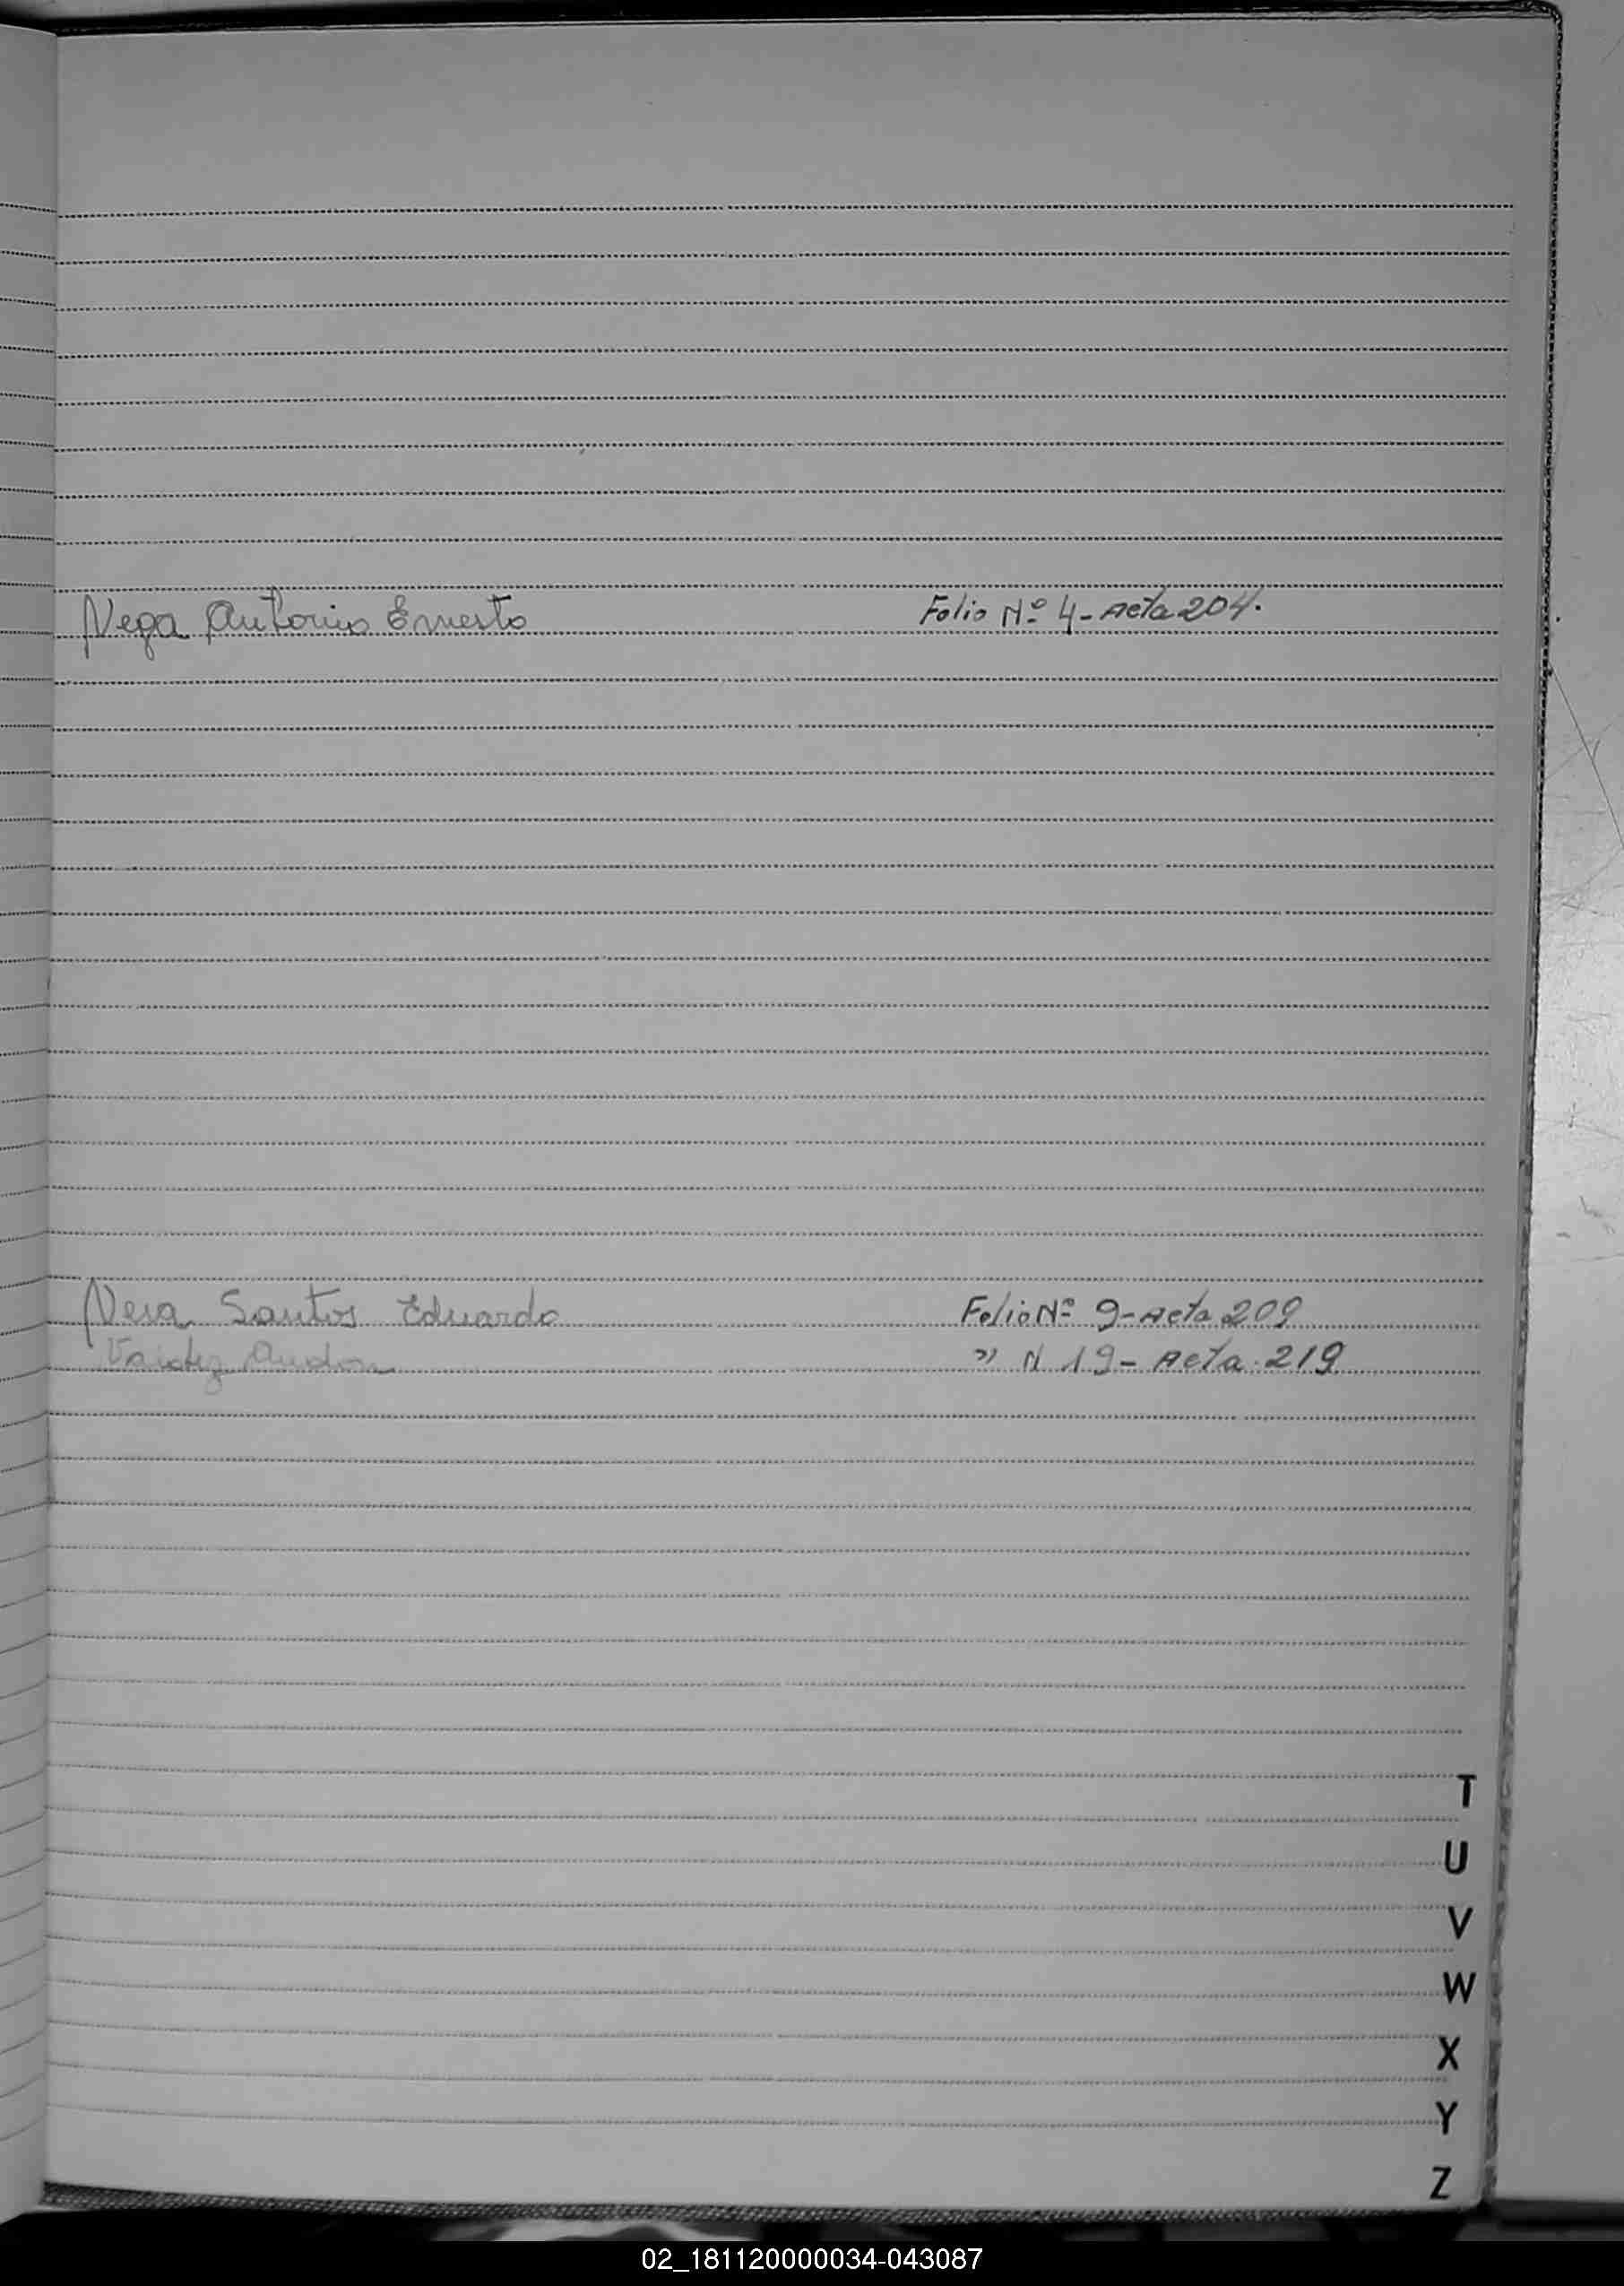 Vega Antonio Ernesto Folio Nº 4 - Acta 204.
Vera Santos Eduardo Folio Nº 9 - Acta 209
Valdez " N 19 - Acta 219
T
U
V
W
X
Y
Z
02_181120000034-043087